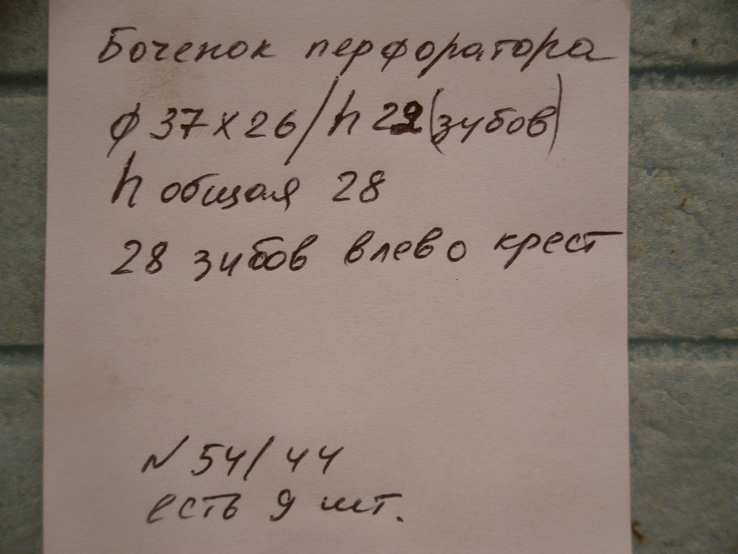 Боченок перфоратора
ф 37х26/h 22(зубов)
h общая 28
28 зубов влево крест
N 54/44
есть 9 шт.